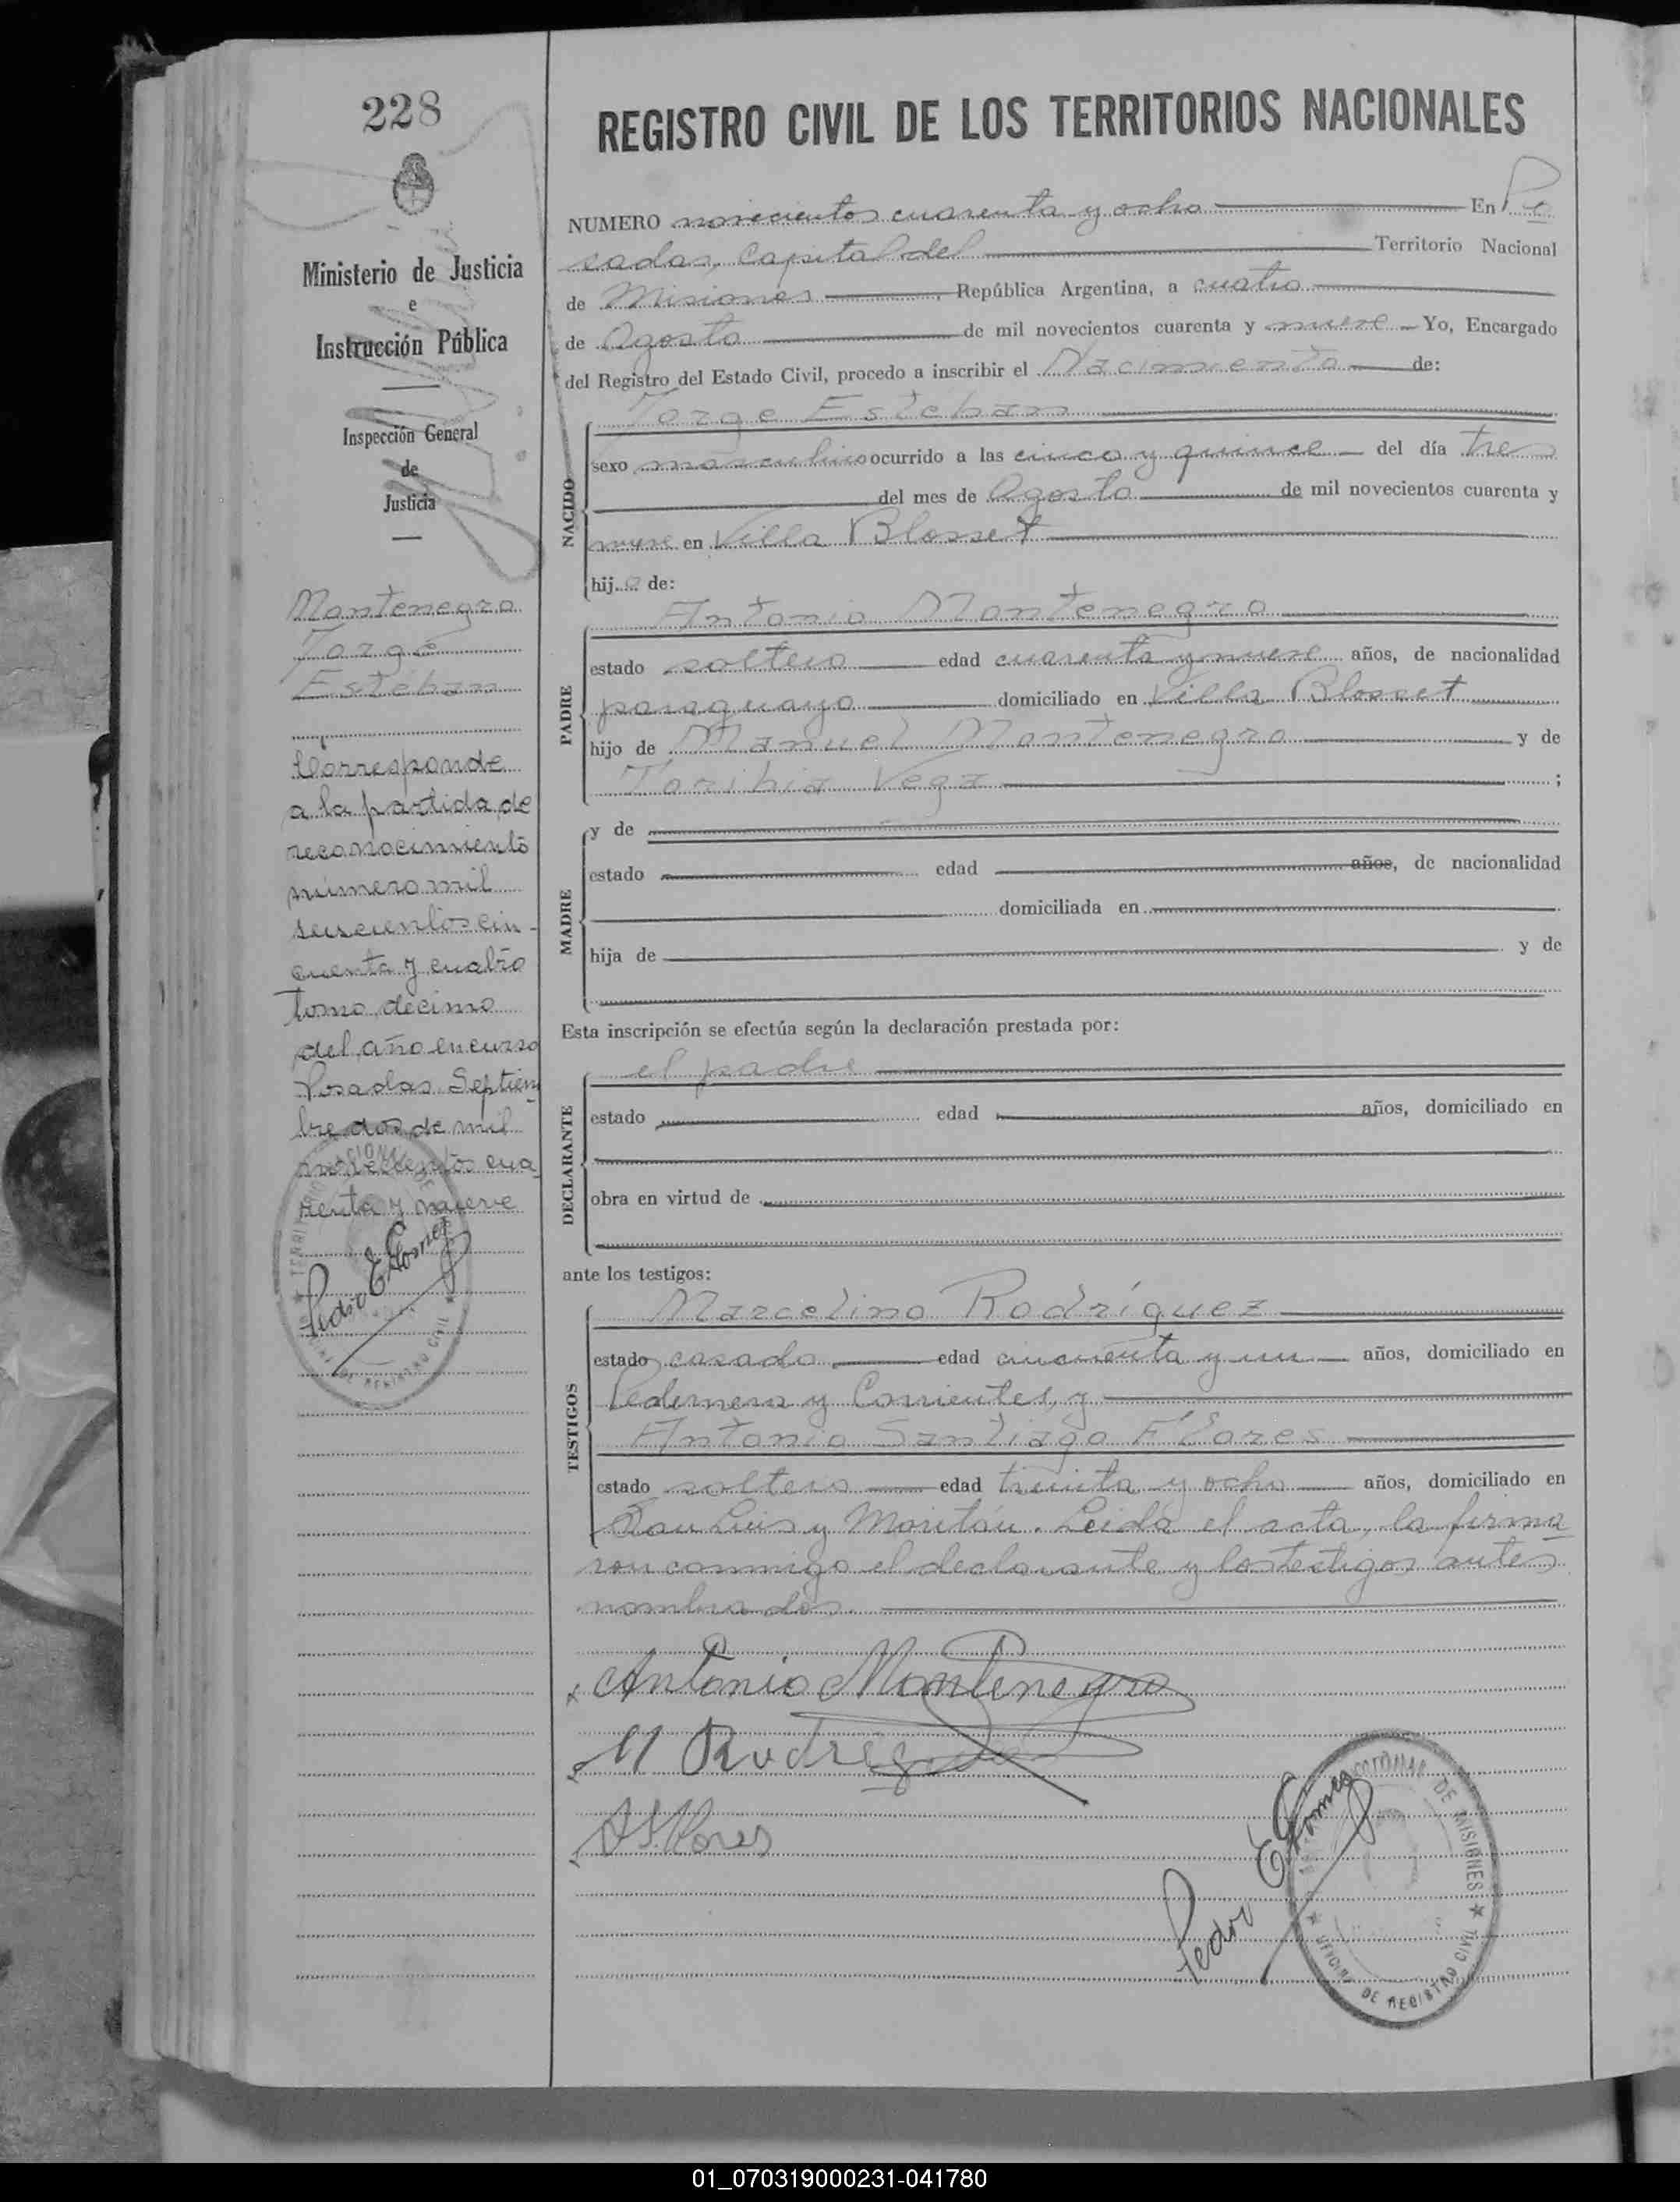 228
Ministerio de Justicia
e
Instrucción Pública
Inspección General
de
Justicia
Montenegro
Jorge
Esteban
Corresponde
a la partida de
reconocimiento
número mil
seiscientos cin-
cuenta y cuatro
tomo décimo
del año en curso
Posadas Septiem
bre dos de mil
novecientos cua
renta y nueve
Pedro E Gomez
REGISTRO CIVIL DE LOS TERRITORIOS NACIONALES
NUMERO novecientos cuarenta y ocho En Po
sadas, Capital del Territorio Nacional
de Misiones, República Argentina, a cuatro
de Agosto de mil novecientos cuarenta y nueve Yo, Encargado
del Registro del Estado Civil, procedo a inscribir el Nacimiento de:
NACIDO
Jorge Esteban
sexo masculino ocurrido a las cinco y quince del día tres
del mes de Agosto de mil novecientos cuarenta y
nueve en Villa Blosset
hijo de:
PADRE
Antonio Montenegro
estado soltero edad cuarenta y nueve años, de nacionalidad
paraguayo domiciliado en Villa Blosset
hijo de Manuel Montenegro y de
Toribia Vega ;
MADRE
y de
estado edad años, de nacionalidad
domiciliada en
hija de y de
Esta inscripción se efectúa según la declaración prestada por:
DECLARANTE
el padre
estado edad años, domiciliado en
obra en virtud de
ante los testigos:
TESTIGOS
Marcelino Rodríguez
estado casado edad cincuenta y un años, domiciliado en
Pedernera y Corrientes, y
Antonio Santiago Flores
estado soltero edad treinta y ocho años, domiciliado en
San Luis y Moritán. Leída el acta, la firma
ron conmigo el declarante y los testigos antes
nombrados.
Antonio Montenegro
M Rodríguez
A S Flores
Pedro E Gomez
NACIONAL DE MISIONES
OFICINA DE REGISTRO CIVIL
01_070319000231-041780